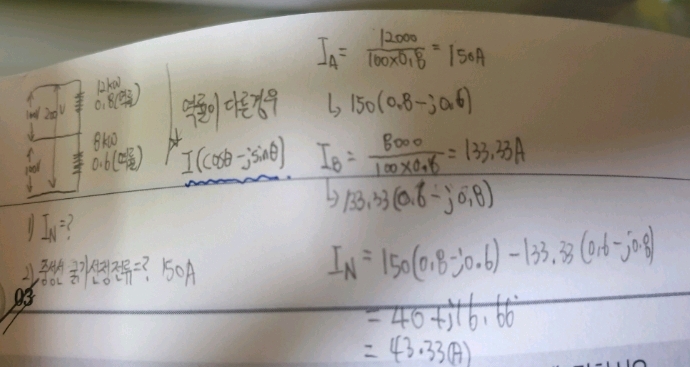 12kW
0.8(역률)
100V 200V
8kW
0.6(역률)
100V
역률이 다른경우
I(cosθ-jsinθ)
1) I_N=?
2) 중성선 굵기선정전류=? 150A
03
I_A = 12000/100×0.8 = 150A
↳ 150(0.8-j0.6)
I_B = 8000/100×0.6 = 133.33A
↳ 133.33(0.6-j0.8)
I_N = 150(0.8-j0.6) - 133.33(0.6-j0.8)
= 40+j16.66
= 43.33(A)